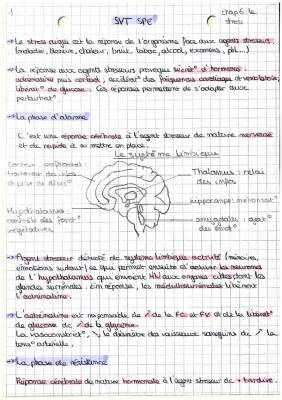 1
SVT SPE
chap 6: le stress
→ Le stress aigu est la réponse de l'organisme face aux agents stresseurs
(maladie, blessure, chaleur, bruit, tabac, alcool, examens, ...)
→ La réponse aux agents stresseurs provoque sécrét° d'hormones :
adrénaline puis cortisol, accélérat° des fréquences cardiaque et ventilatoire,
libérat° de glucose. Ces réponses permettent de s'adapter aux
perturbat°.
→ La phase d'alarme
C'est une réponse cérébrale à l'agent stresseur de nature nerveuse
et de rapide à se mettre en place.
Le système limbique
Cortex préfrontal :
traitement des infos
et prise de décis°
Thalamus : relai
des infos
hippocampe : mémorisat°
Hypothalamus :
contrôle des fonct°
végétatives
amygdale : gest°
des émot°
→ Agent stresseur détecté de système limbique activité (mémoire,
émotions surtout) ce qui permet ensuite d'activer les neurones
de l'hypothalamus qui envoient aux cellules dont les
glandes surrénales. En réponse, les médullosurrénales libèrent
l'adrénaline.
→ L'adrénaline est responsable de ↗ de la FC et FV et de la libérat°
de glucose dc ↗ de la glycémie.
La vasoconstrict°, ↘ le diamètre des vaisseaux sanguins dc ↗ la
tens° artérielle.
→ La phase de résistance
Réponse cérébrale de nature hormonale à l'agent stresseur de + tardive.